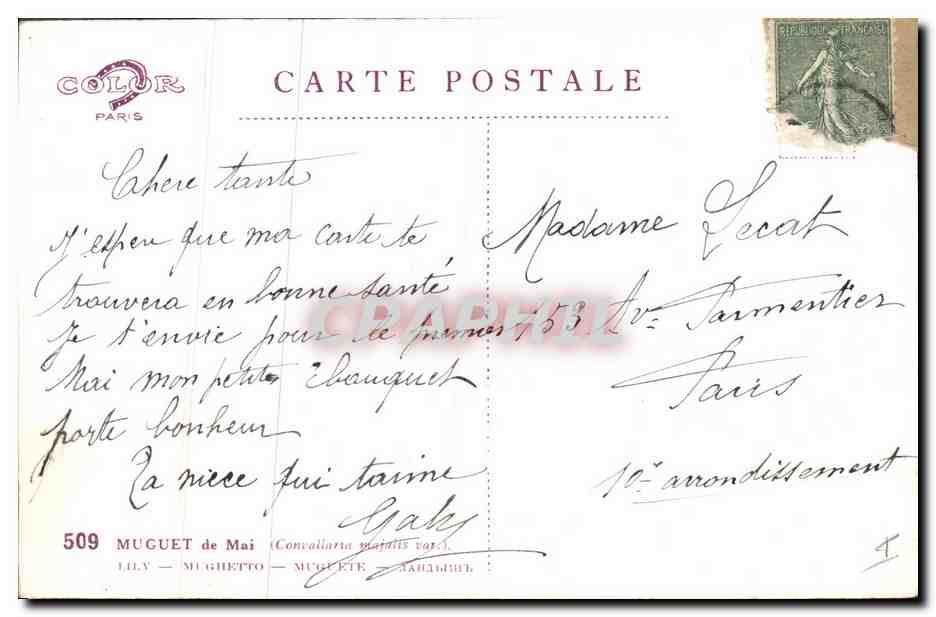 COLOR
PARIS
CARTE POSTALE
REPUBLIQUE FRANÇAISE
Cahere tante
J'esper que ma carte te
trouvera en bonne santé
Je t'envie pour le premier
Mai mon petit bouquet
porte bonheur
Ta niece qui taime
Gaby
Madame Lecat
153 Av. Parmentier
Paris
10e arrondissement
509 MUGUET de Mai (Convallaria majalis var.).
LILY — MUGHETTO — MUGUETE — ЛАНДЫШЪ
CPAPHIL